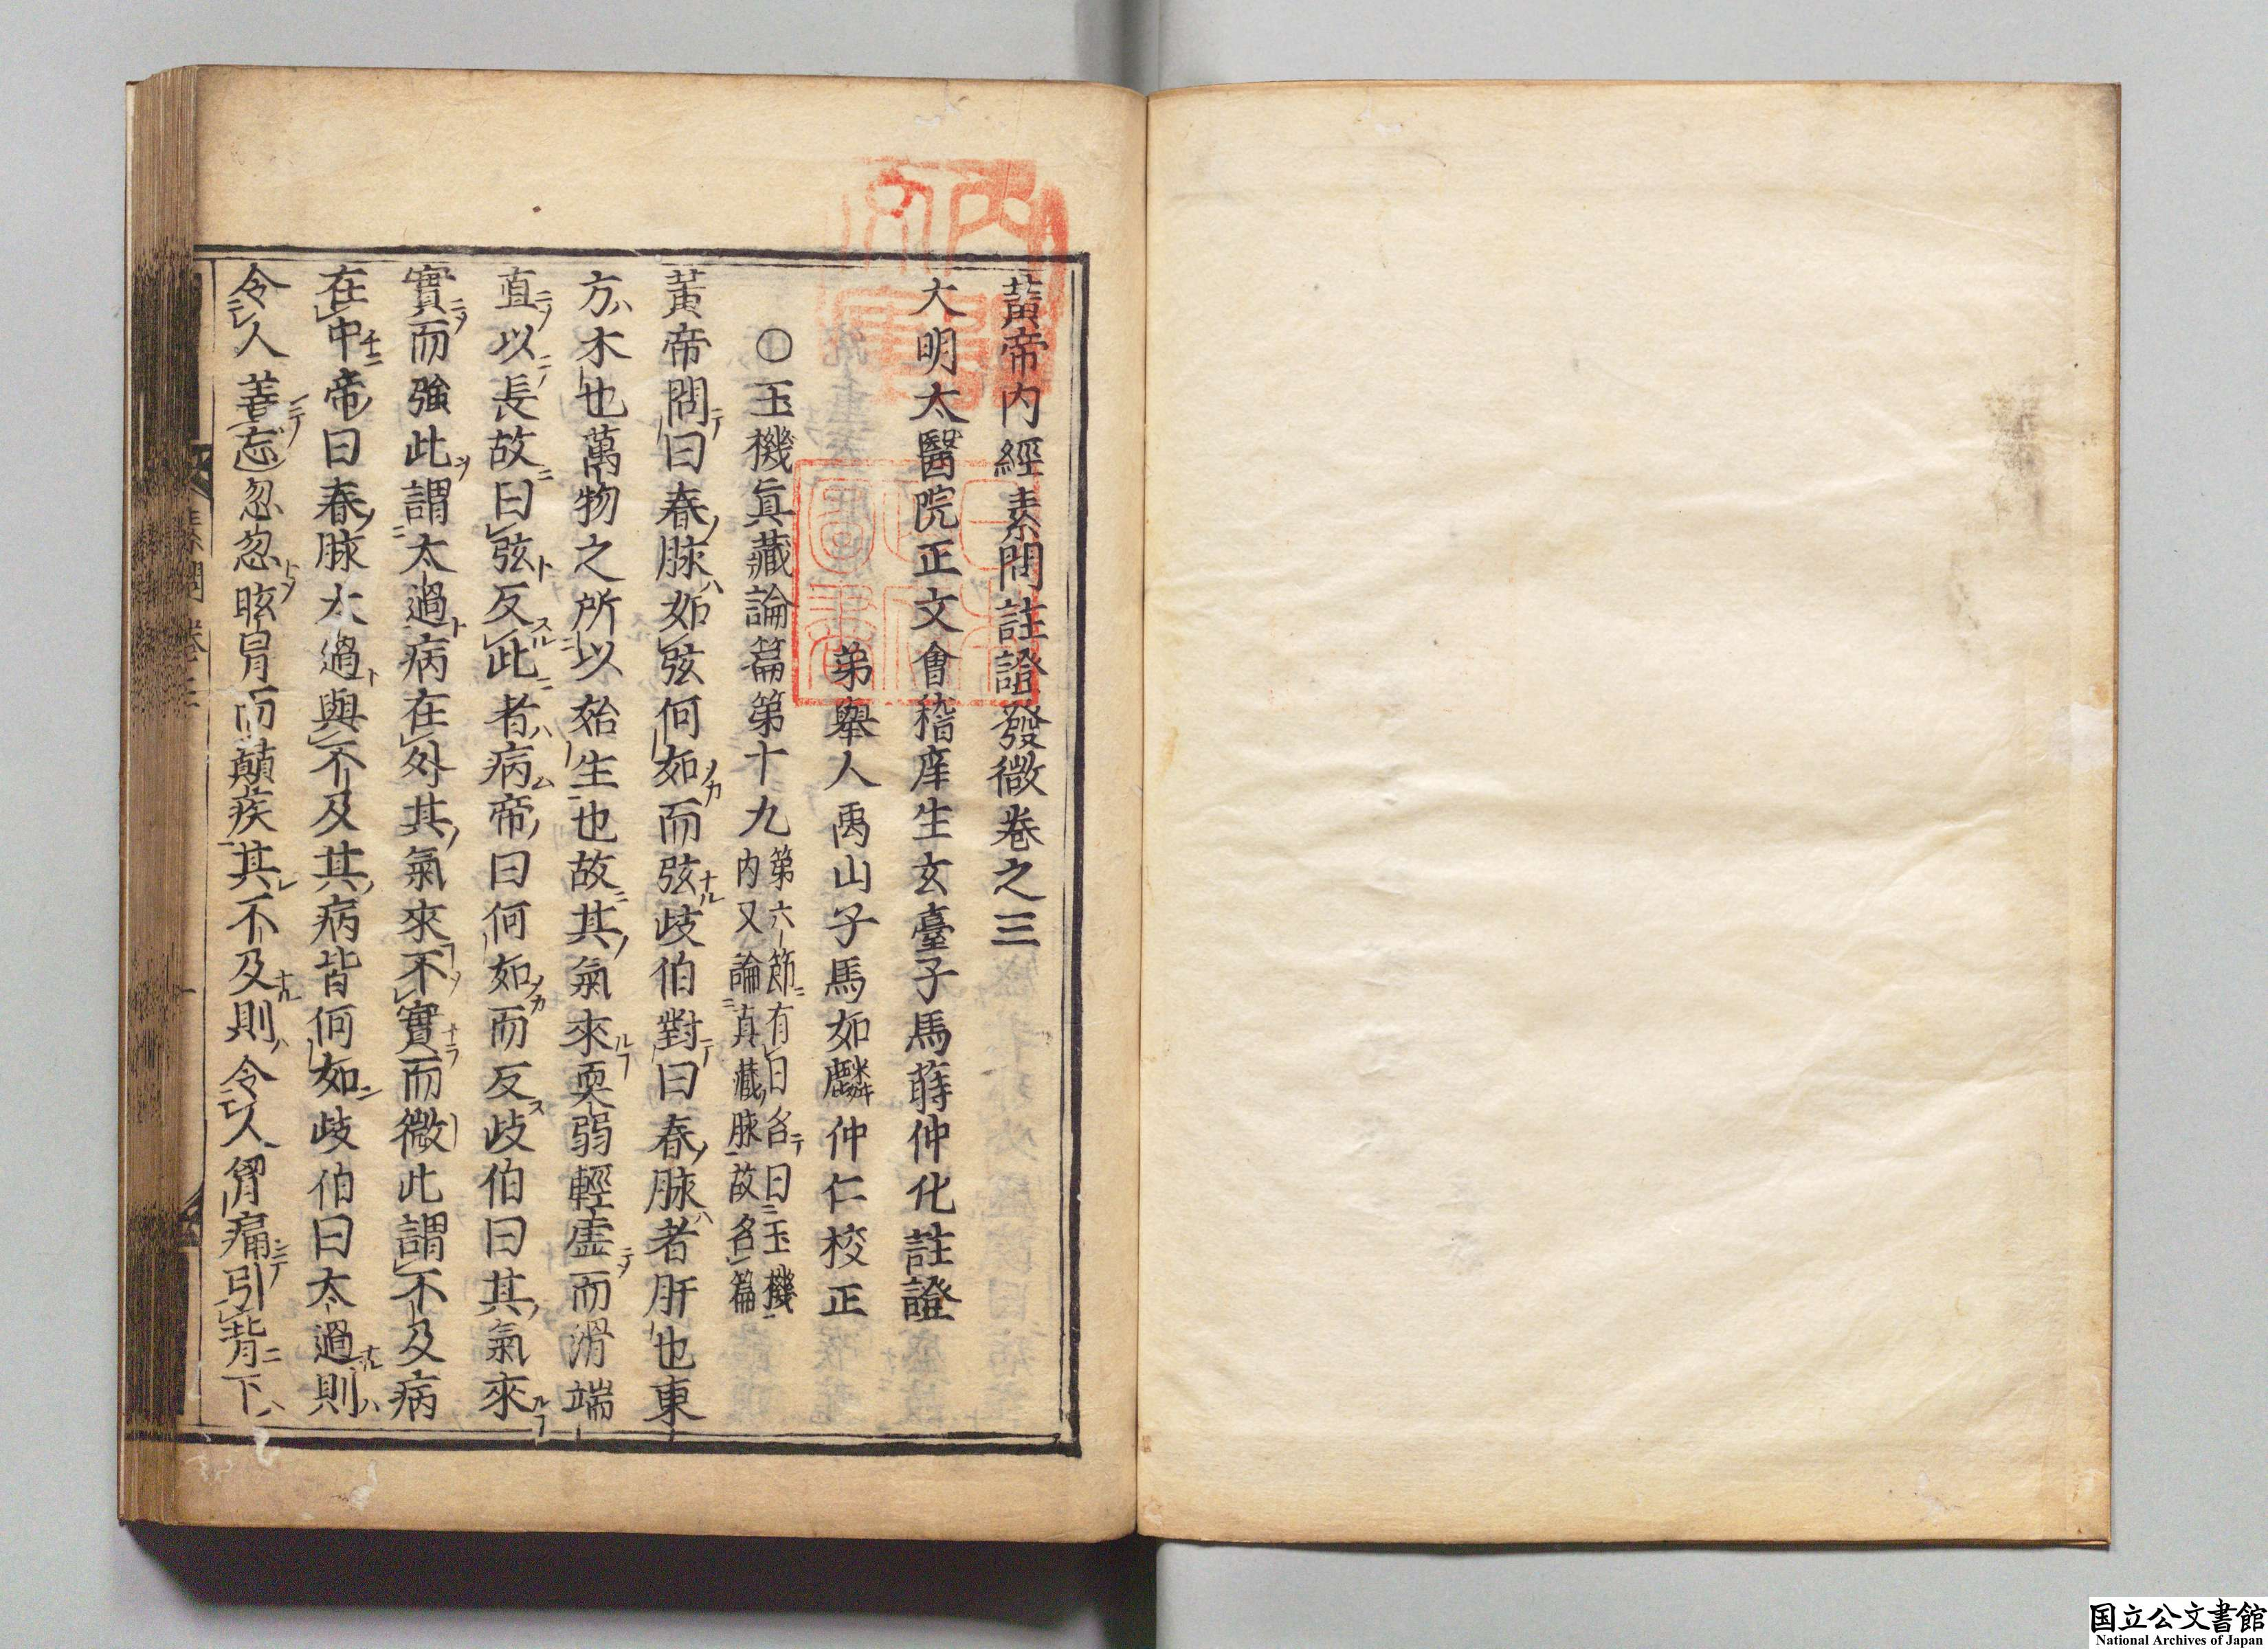 黃帝內經素問註證發微卷之三
大明太醫院正文會稽庠生玄臺子馬蒔仲化註證
弟舉人禹山子馬如麟仲仁校正
○玉機眞藏論篇第十九
第六節有曰名曰玉機
内又論真藏脉故名篇
黃帝問曰春脉如弦何如而弦歧伯對曰春脉者肝也東
方木也萬物之所以始生也故其氣來耎弱輕虛而滑端
直以長故曰弦反此者病帝曰何如而反歧伯曰其氣來
實而強此謂太過病在外其氣來不實而微此謂不及病
在中帝曰春脉太過與不及其病皆何如歧伯曰太過則
令人善忘忽忽眩冒而顛疾其不及則令人胷痛引背下
素問 卷三
国立公文書館
National Archives of Japan